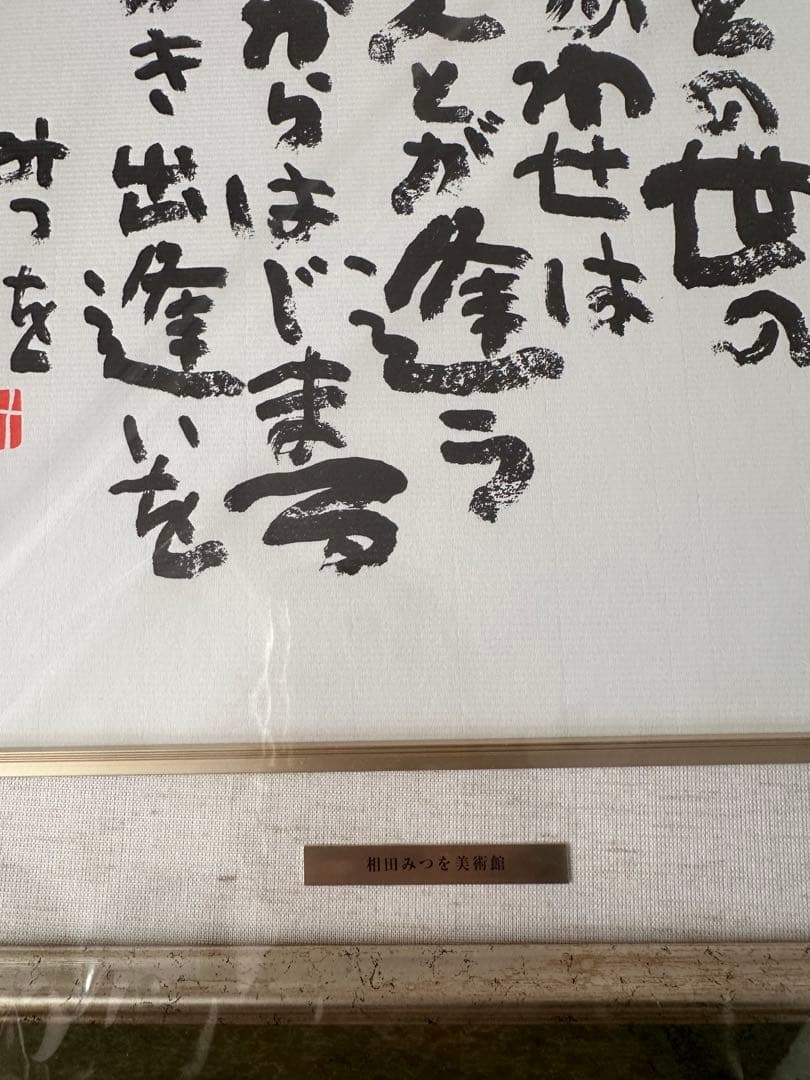 との世の
わせは
人とが逢う
からはじまる
き出逢いを
みつを
相田みつを美術館